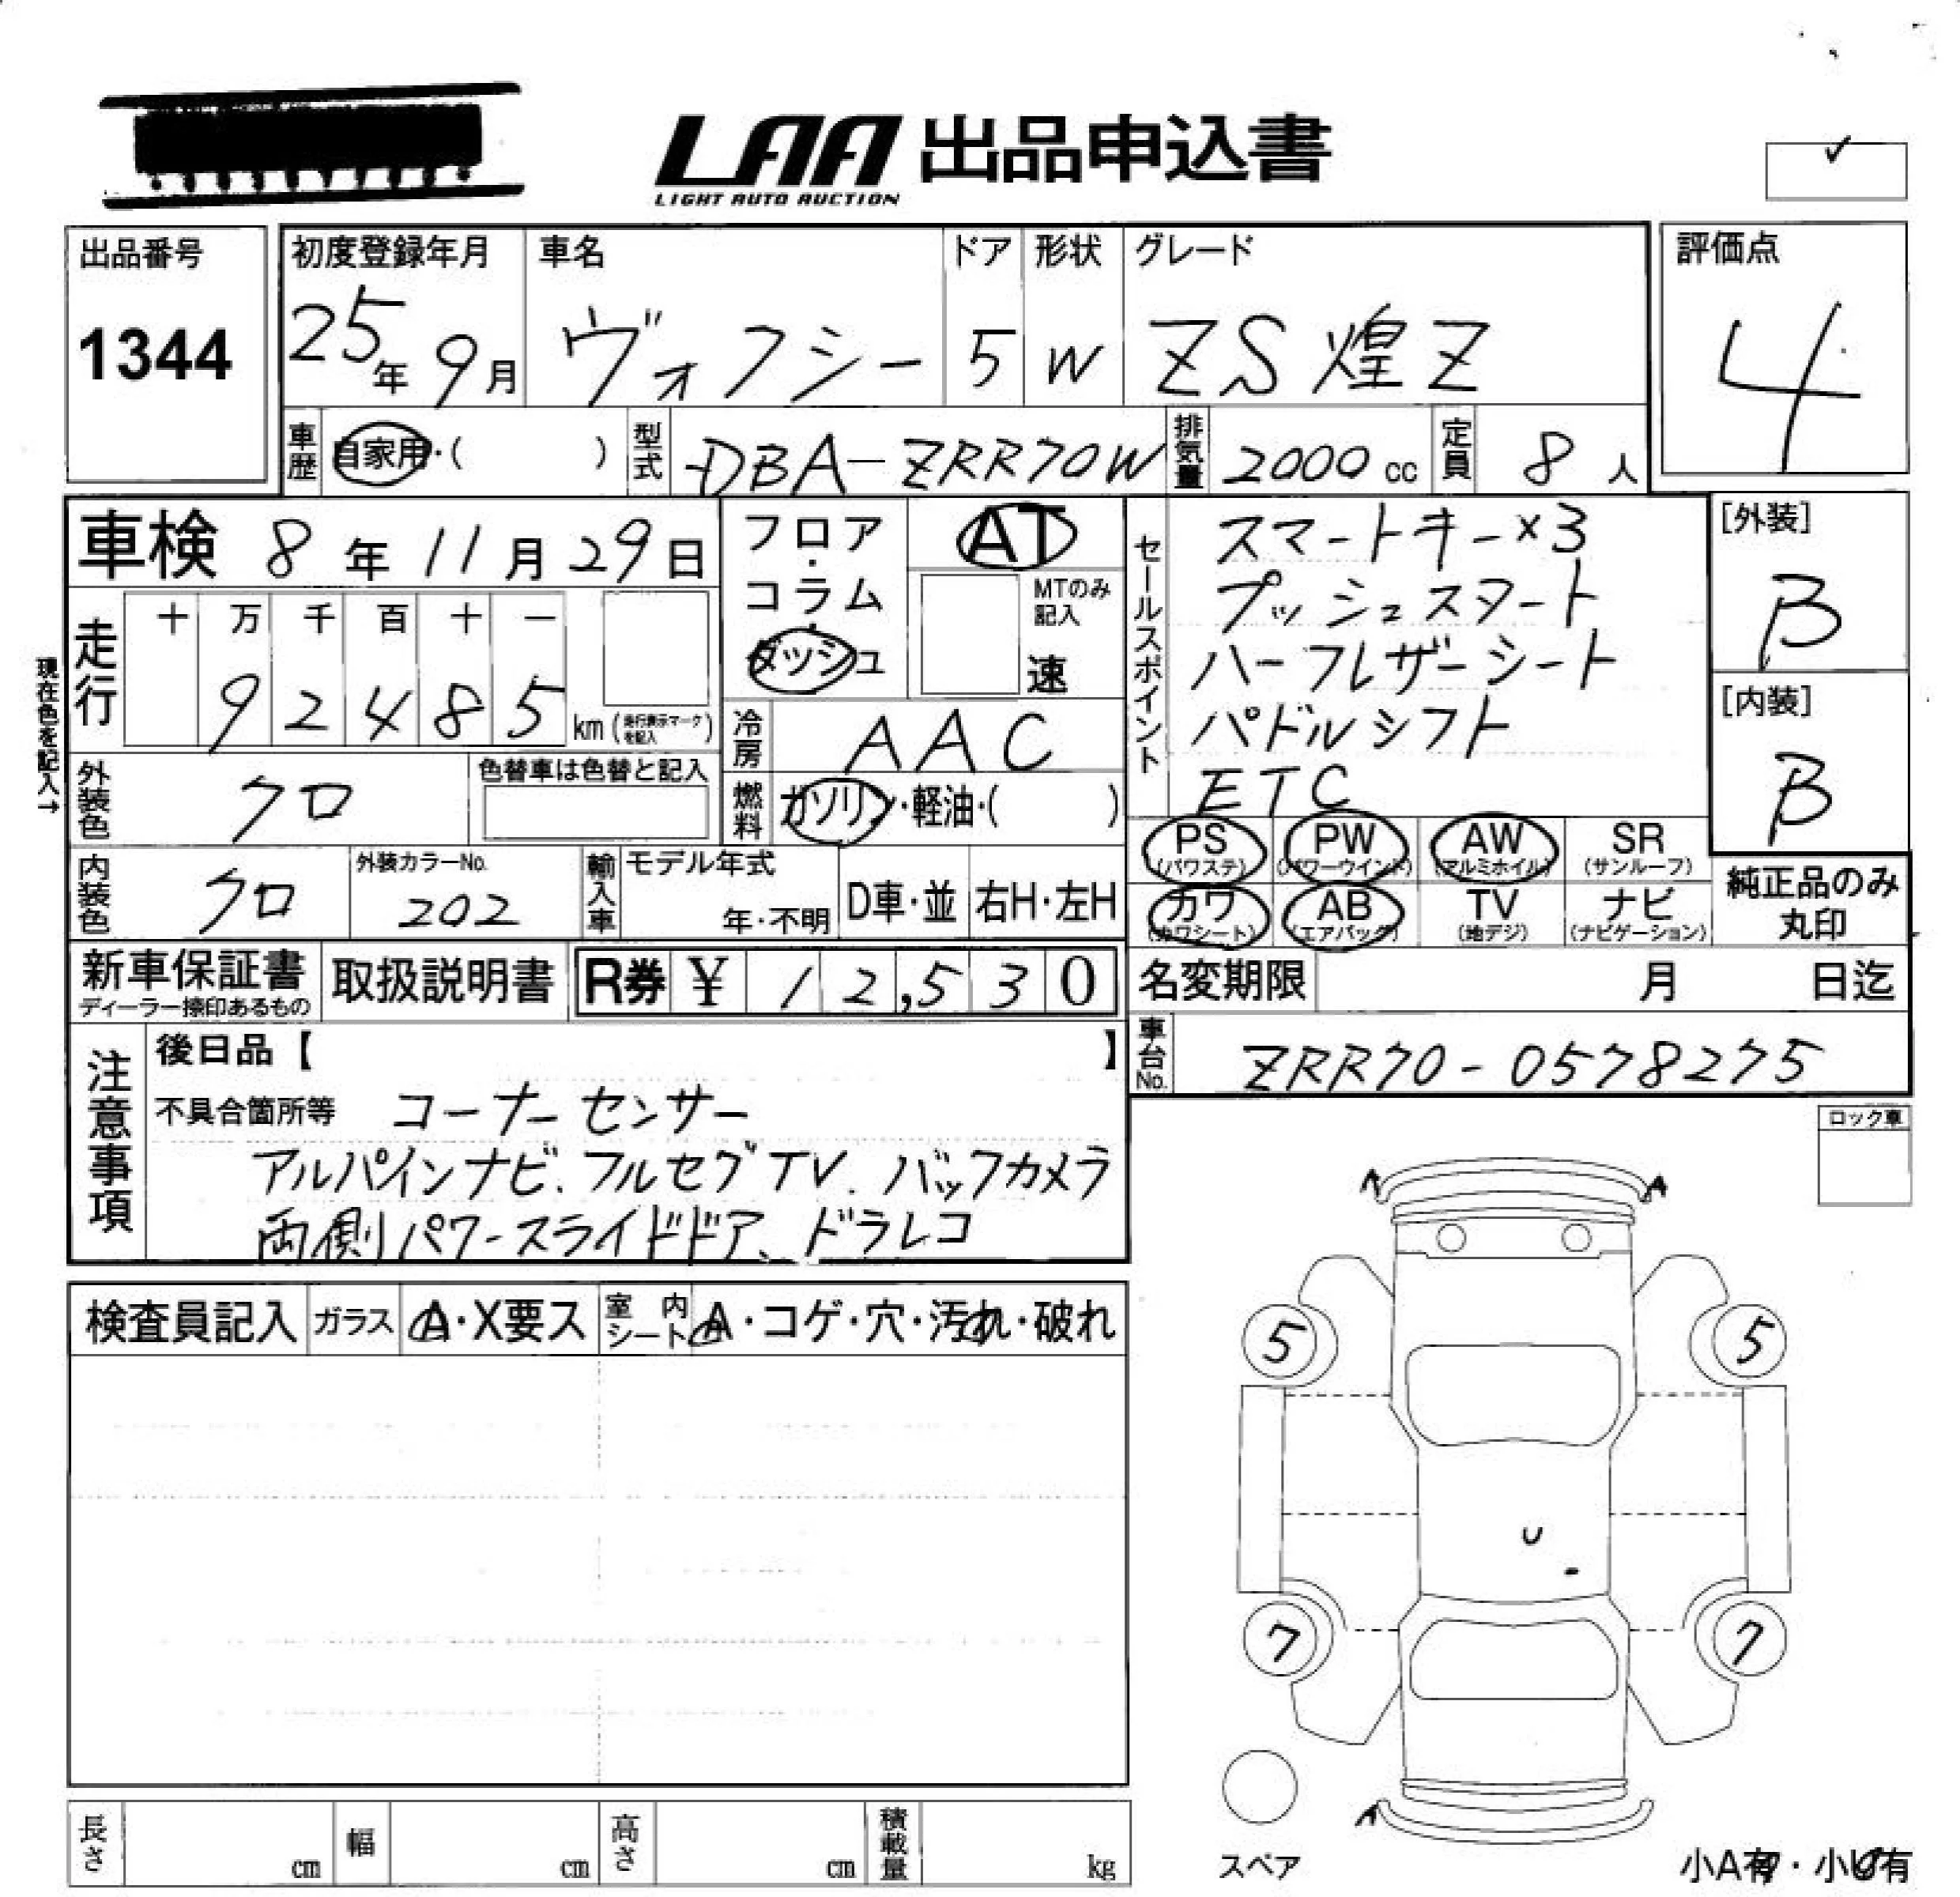 LAA 出品申込書
LIGHT AUTO AUCTION
✓
出品番号
1344
初度登録年月
25年 9月
車名
ヴォクシー
ドア
5
形状
W
グレード
ZS 煌Z
評価点
4
車歴 自家用・( )
型式 DBA-ZRR70W
排気量 2000 cc
定員 8 人
車検 8年 11月 29日
フロア・コラム・ダッシュ
AT
MTのみ記入
速
セールスポイント
スマートキー×3
プッシュスタート
ハーフレザーシート
パドルシフト
ETC
[外装]
B
[内装]
B
現在色を記入→
走行
十 万 千 百 十 一
9 2 4 8 5 km (走行表示マークを記入)
冷房 AAC
燃料 ガソリン・軽油・( )
外装色 クロ
色替車は色替と記入
内装色 クロ
外装カラーNo.
202
輸入車
モデル年式
年・不明
D車・並
右H・左H
PS (パワステ)
PW (パワーウインド)
AW (アルミホイル)
SR (サンルーフ)
カワ (カワシート)
AB (エアバック)
TV (地デジ)
ナビ (ナビゲーション)
純正品のみ
丸印
新車保証書
ディーラー捺印あるもの
取扱説明書
R券 ¥ 12,530
名変期限 月 日迄
車台No. ZRR70-0578275
注意事項
後日品【 】
不具合箇所等 コーナーセンサー
アルパインナビ、フルセグTV、バックカメラ
両側パワースライドドア、ドラレコ
ロック車
検査員記入
ガラス A・X要ス
室内シート A・コゲ・穴・汚れ・破れ
A A
5 5
U
7 7
A
スペア
小A有・小U有
長さ cm
幅 cm
高さ cm
積載量 kg